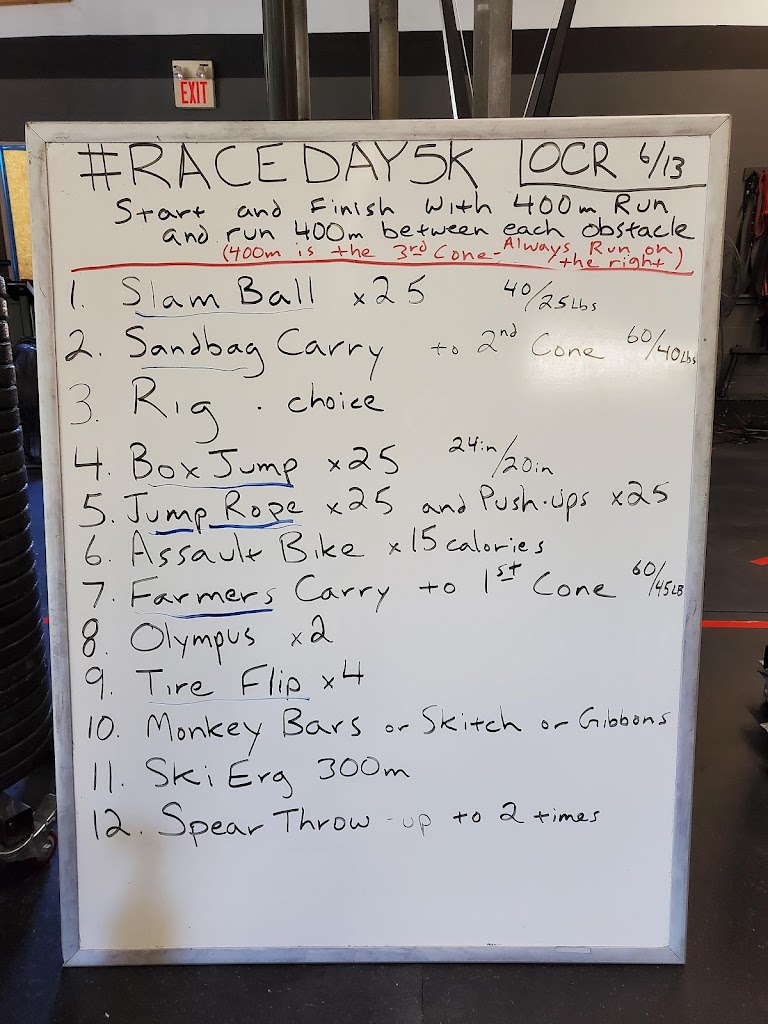 EXIT
#RACEDAY5K OCR 6/13
Start and Finish with 400m Run
and run 400m between each obstacle
(400m is the 3rd Cone - Always Run on
the right)
1. Slam Ball x25 40/25Lbs
2. Sandbag Carry to 2nd Cone 60/40Lbs
3. Rig . choice
4. Box Jump x25 24in/20in
5. Jump Rope x25 and Push-ups x25
6. Assault Bike x15 calories
7. Farmers Carry to 1st Cone 60/45LB
8. Olympus x2
9. Tire Flip x4
10. Monkey Bars or Skitch or Gibbons
11. Ski Erg 300m
12. Spear Throw - up to 2 times